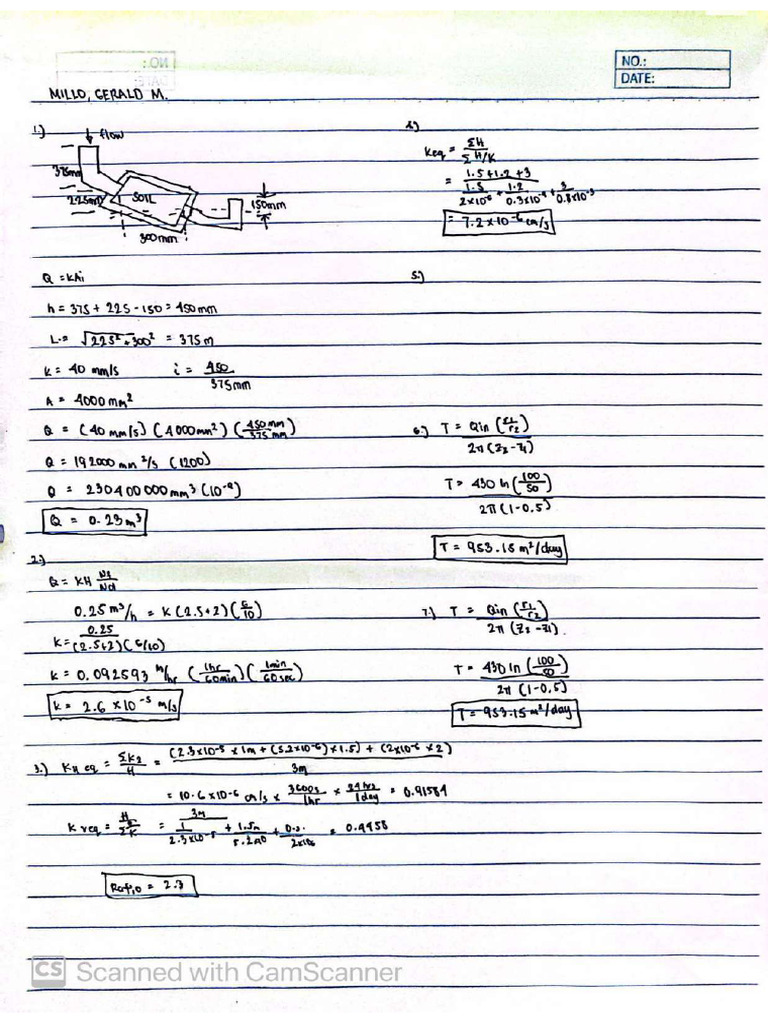 NO.:
DATE:
MILLO, GERALD M.
1.)
flow
375mm
225mm
SOIL
150mm
300mm
Q = KAi
h = 375 + 225 - 150 = 450mm
L = √225² + 300² = 375 m
K = 40 mm/s i = 450/375mm
A = 4000mm²
Q = (40 mm/s) (4000mm²) (450mm/375mm)
Q = 192000 mm³/s (1200)
Q = 230400000mm³ (10⁻⁹)
Q = 0.23m³
2.)
Q = KH Nf/Nd
0.25 m³/h = K (2.5+2) (6/10)
K = 0.25/(2.5+2)(6/10)
K = 0.092593 m/hr (1hr/60min) (1min/60sec)
K = 2.6 x 10⁻⁵ m/s
3.) KH eq = ΣKz/H = (2.3x10⁻⁵ x 1m + (5.2x10⁻⁶) x 1.5) + (2x10⁻⁶ x 2)/3m
= 10.6 x10-6 cm/s x 3600s/1hr x 24hrs/1day = 0.91584
= 0.4458
Ratio = 2.3
Keq = ΣH/ΣH/K
= 1.5+1.2+3
= 7.2 x 10⁻⁶ cm/s
5.)
6.) T = Qln (r1/r2)/2π (z2-z1)
T = 430 ln (100/50)/2π (1-0.5)
T = 953.15 m²/day
7.) T = Qln (r1/r2)/2π (z2-z1).
T = 430 ln (100/50)/2π (1-0.5)
T = 953.15 m²/day
CS Scanned with CamScanner